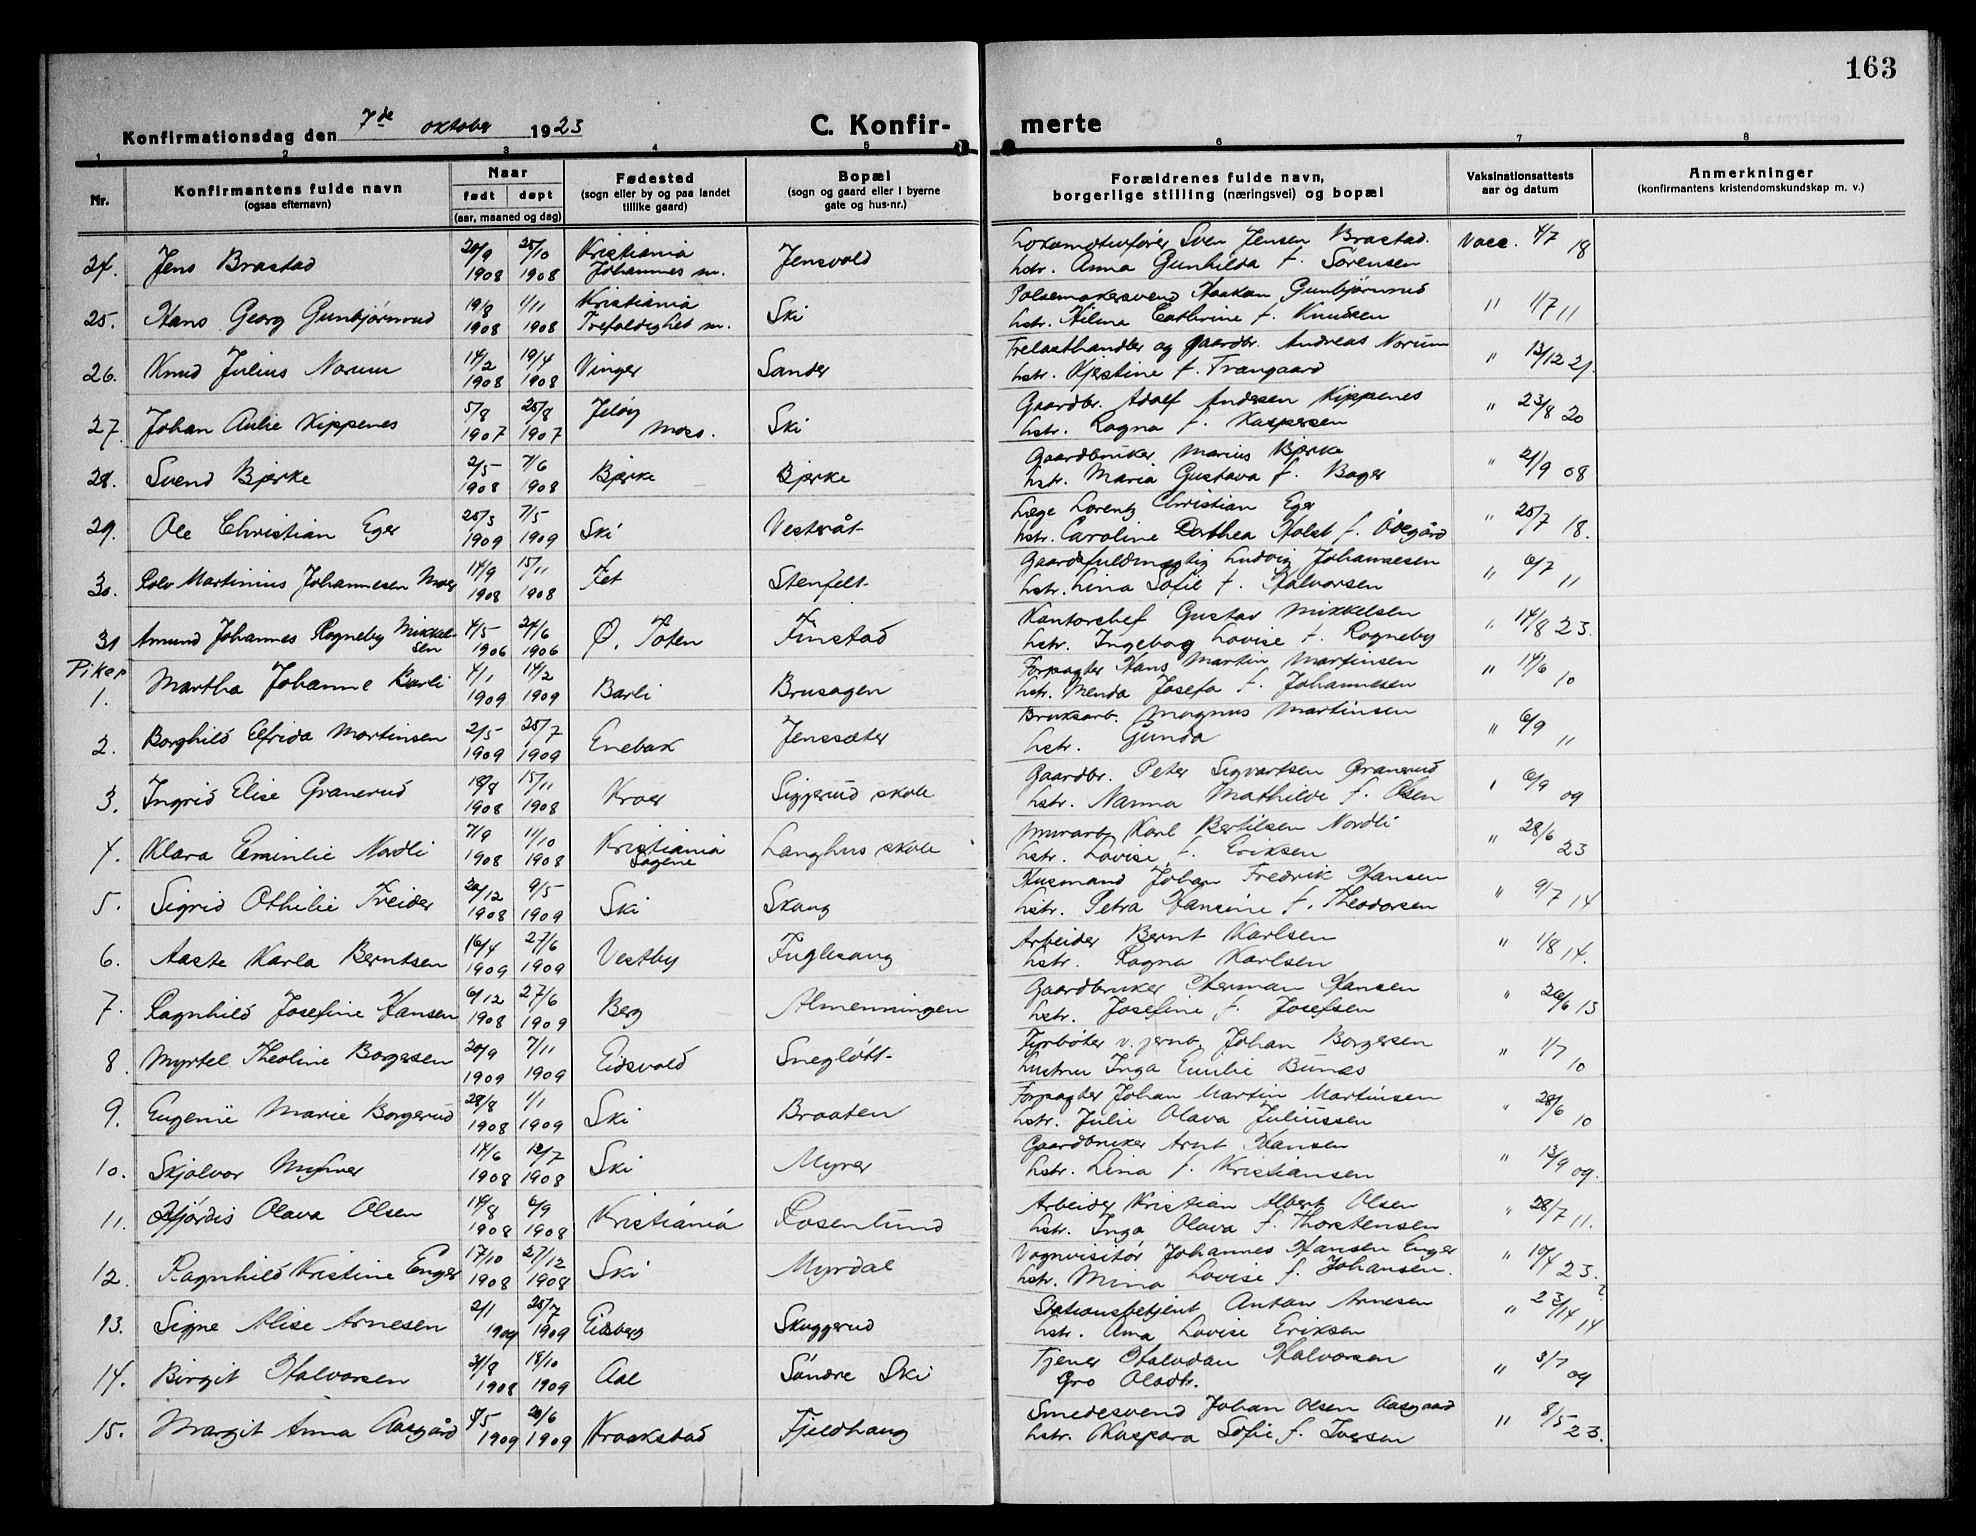 163
Konfirmationsdag den 7de oktober 1923 C. Konfir- merte
1 2 3 4 5 6 7 8
Nr. Konfirmantens fulde navn (ogsaa efternavn) Naar født døpt (aar, maaned og dag) Fødested (sogn eller by og paa landet tillike gaard) Bopæl (sogn og gaard eller i byerne gate og hus-nr.) Forældrenes fulde navn, borgerlige stilling (næringsvei) og bopæl Vaksinationsattests aar og datum Anmerkninger (konfirmantens kristendomskundskap m. v.)
24. Jens Brastad 20/9 1908 25/10 1908 Kristiania Johannes m. Jensvold Lokomotivfører Sven Jensen Brastad. Hstr. Anna Gunhilda f. Sørensen Vacc. 4/7 18
25. Hans Georg Gunbjørnrud 19/8 1908 1/11 1908 Kristiania Trefoldighet m. Ski Pølsemakersvend Haakon Gunbjørnrud Hstr. Hilma Cathrine f. Knutsen " 1/7 11
26. Knud Julius Norum 14/2 1908 19/4 1908 Vinger Sander Trelasthandler og gaardbr. Andreas Norum Hstr. Kjerstine f. Trangaard " 13/12 21.
27. Johan Aulie Kippenes 5/8 1907 25/8 1907 Jeløy Moss. Ski Gaardbr. Adolf Andersen Kippenes Hstr. Ragna f. Kaspersen " 23/8 20
28. Svend Bjerke 2/5 1908 7/6 1908 Bjerke Bjerke Gaardbruker Marius Bjerke Hstr. Maria Gustava f. Bager " 21/9 08
29. Ole Christian Eger 25/3 1909 7/5 1909 Ski Vesteråt Læge Lorentz Christian Eger Hstr. Caroline Dorthea Holst f. Ødegård " 25/7 18.
30. Rolv Martinius Johannesen Moer 14/9 1908 15/11 1908 Fet Stenfelt Gaardsfuldmægtig Ludvig Johannesen Hstr. Lina Sofie f. Halvorsen " 6/7 11
31 Amund Johannes Rogneby Mikkelsen 4/5 1906 24/6 1906 Ø. Toten Finstad Kontorchef Gustav Mikkelsen Hstr. Ingeborg Lovise f. Rogneby " 14/8 23.
Piker
1. Martha Johanne Barli 4/1 1909 14/2 1909 Barli Brusagen Forpagter Hans Martin Martinsen Hstr. Menda Josefa f. Johannesen " 14/6 10
2. Borghild Elfrida Martinsen 2/5 1909 25/7 1909 Enebak Jenssæter Bruksarb. Magnus Martinsen Hstr. Gunda " 6/9 11
3. Ingrid Elise Granerud 18/8 1908 15/11 1908 Kroer Siggerud skole Gaardbr. Peter Sigvartsen Granerud Hstr. Nanna Mathilde f. Olsen " 6/9 09
4. Klara Eminlie Nordli 7/9 1908 11/10 1908 Kristiania Sagene Langhus skole Murarb. Karl Bertilsen Nordli Hstr. Lovise f. Eriksen " 28/6 23
5. Sigrid Othilie Freider 20/12 1908 9/5 1909 Ski Skaug Husmand Johan Fredrik Hansen Hstr. Petra Hansine f. Theodorsen " 9/7 14
6. Aaste Karla Berntsen 16/4 1909 27/6 1909 Vestby Fuglesang Arbeider Bernt Karlsen Hstr. Ragna Karlsen " 1/8 14.
7. Ragnhild Josefine Hansen 6/12 1908 27/6 1909 Berg Almenningen Gaardbruker Herman Hansen Hstr. Josefine f. Josefsen " 26/6 13
8. Myrtel Theoline Borgersen 20/9 1909 7/11 1909 Eidsvold Snegløtt Fyrbøter v. jernb. Johan Borgersen Hustru Inga Emilie Bunæs " 1/7 10
9. Eugenie Marie Borgerud 28/8 1908 1/1 1909 Ski Braaten Forpagter Johan Martin Martinsen Hstr. Julie Olava Juliussen " 28/6 10
10. Skjalvor Myhrer 14/6 1908 12/7 1908 Ski Myrer Gaardbruker Arnt Hansen Hstr. Lina f. Kristiansen " 13/9 09.
11. Hjørdis Olava Olsen 14/8 1908 6/9 1908 Kristiania Rosenlund Arbeider Kristian Albert Olsen Hstr. Inga Olava f. Thorstensen " 28/7 11.
12. Ragnhild Kristine Enger 17/10 1908 27/12 1908 Ski Myrdal Vognvisitør Johannes Hansen Enger Hstr. Mina Lovise f. Johansen. " 10/4 23.
13. Signe Alise Arnesen 2/1 1909 25/7 1909 Eidsberg Skuggerud Stationsbetjent Anton Arnesen Hstr. Ama Lovise Eriksen " 23/14 14 ?
14. Birgit Halvorsen 31/8 1908 18/10 1909 Aal Søndre Ski Tjener Halvdan Halvorsen Gro Olsdtr. " 3/7 09
15. Margit Anna Aasgård 4/5 1909 20/6 1909 Kraakstad Fjeldhaug Smedesvend Johan Olsen Aasgaard Hstr. Kaspara Sofie f. Iversen " 8/5 23.